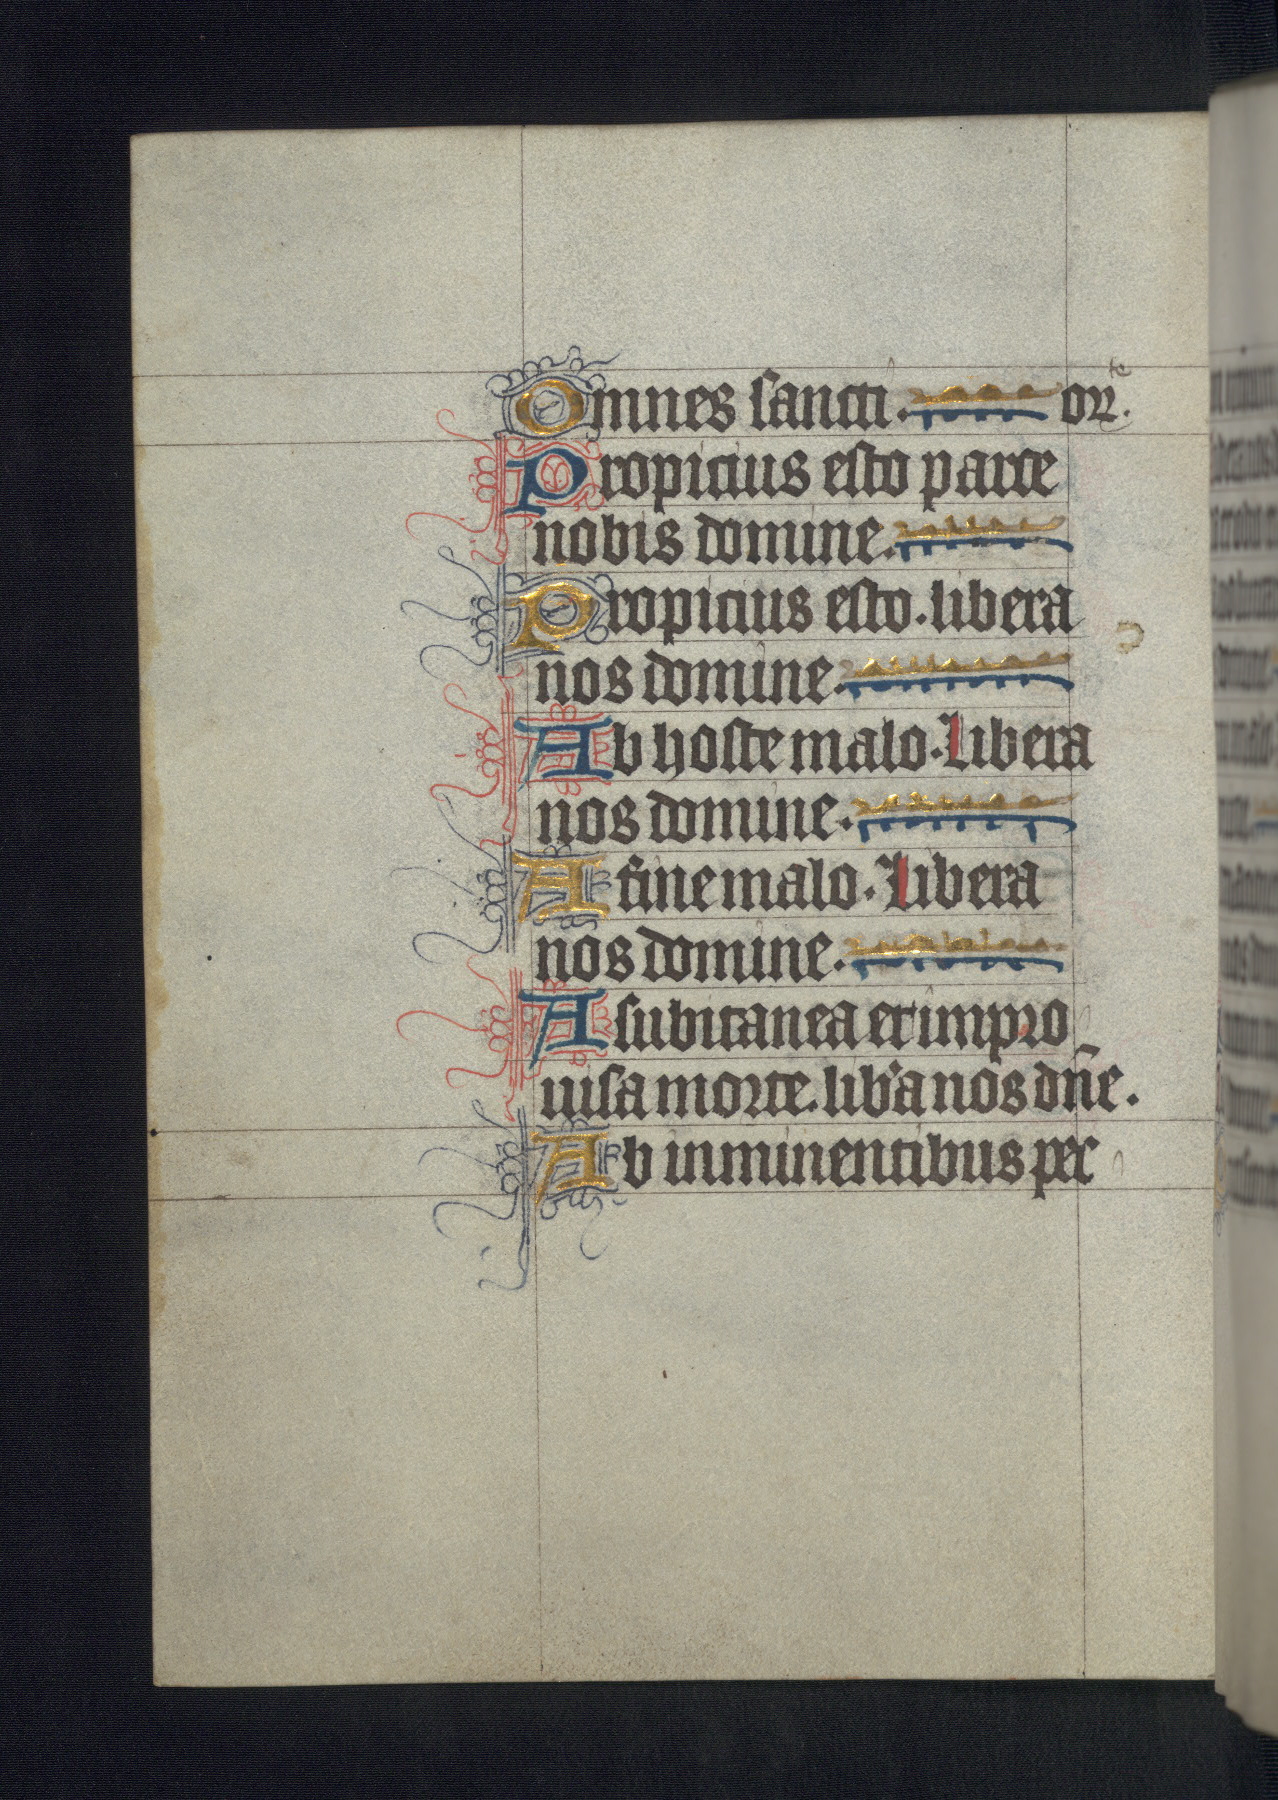 Omnes sancti. or. te
Propicius esto parce
nobis domine.
Propicius esto. libera
nos domine.
Ab hoste malo. Libera
nos domine.
A fine malo. Libera
nos domine.
A subitanea et impro
uisa morte. lib'a nos dn̄e.
Ab inminentibus per